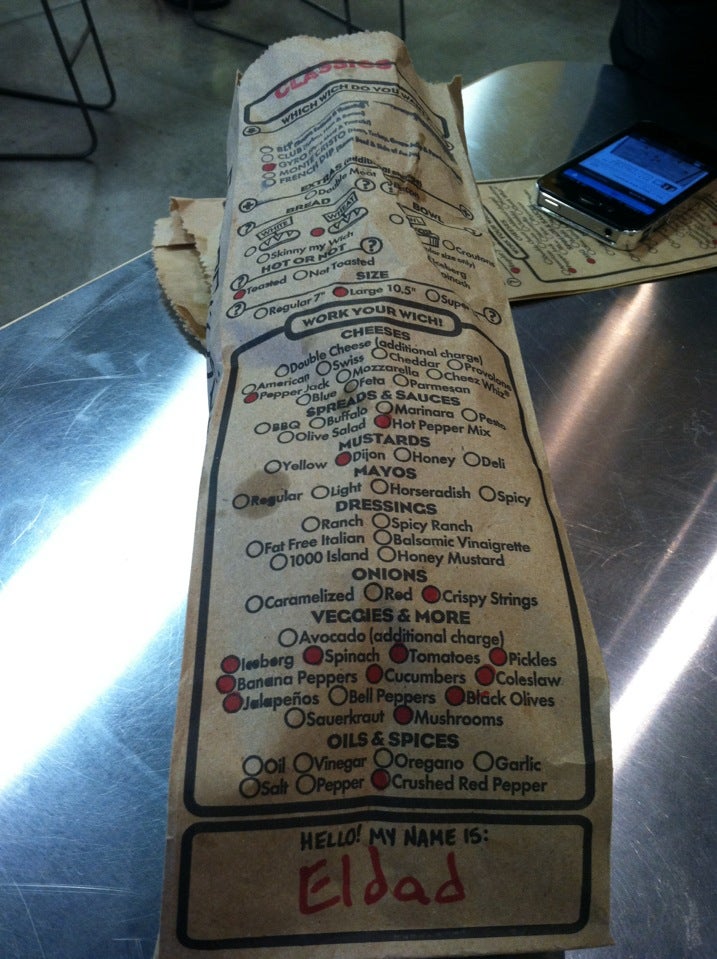 CLASSICS
WHICH WICH DO YOU WANT?
BLT
CLUB
GYRO
MONTE CRISTO
FRENCH DIP
EXTRAS
Double Meat Bacon
BREAD
BOWL
WHITE WHEAT
Skinny my Wich Croutons
HOT OR NOT Iceberg
Toasted Not Toasted
SIZE
Regular 7" Large 10.5"
WORK YOUR WICH!
CHEESES
Double Cheese (additional charge)
American Swiss Cheddar Provolone
Pepper Jack Mozzarella Cheez Whiz®
Blue Feta Parmesan
SPREADS & SAUCES
BBQ Buffalo Marinara Pesto
Olive Salad Hot Pepper Mix
MUSTARDS
Yellow Dijon Honey Deli
MAYOS
Regular Light Horseradish Spicy
DRESSINGS
Ranch Spicy Ranch
Fat Free Italian Balsamic Vinaigrette
1000 Island Honey Mustard
ONIONS
Caramelized Red Crispy Strings
VEGGIES & MORE
Avocado (additional charge)
Iceberg Spinach Tomatoes Pickles
Banana Peppers Cucumbers Coleslaw
Jalapeños Bell Peppers Black Olives
Sauerkraut Mushrooms
OILS & SPICES
Oil Vinegar Oregano Garlic
Salt Pepper Crushed Red Pepper
HELLO! MY NAME IS:
Eldad